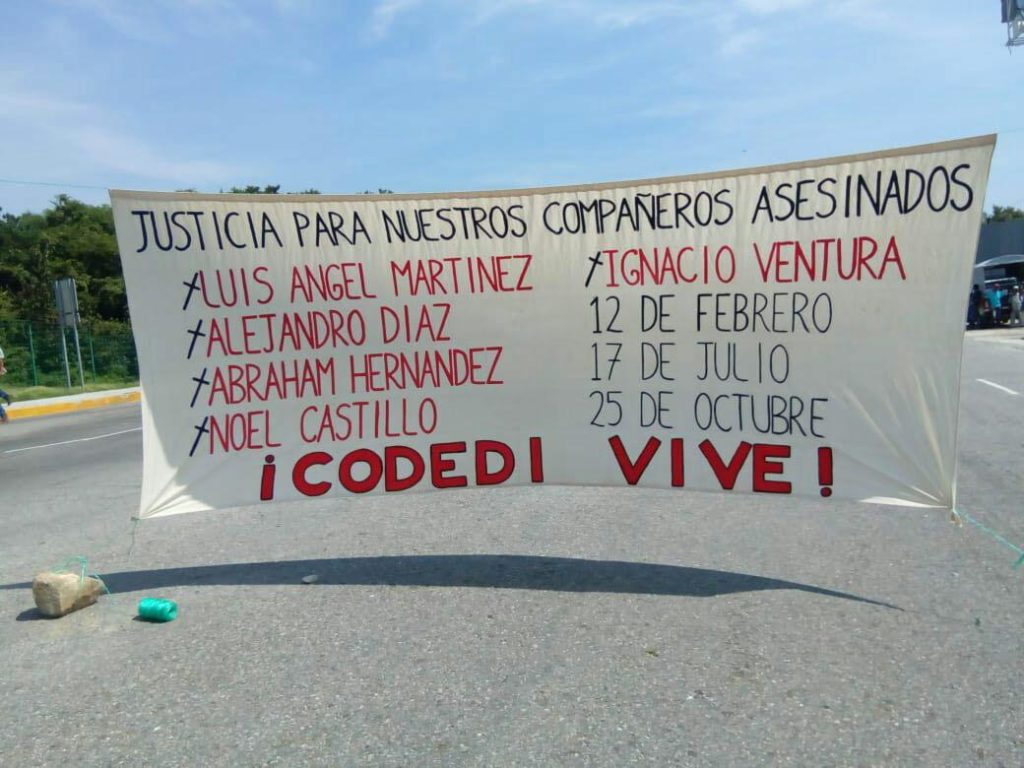 JUSTICIA PARA NUESTROS COMPAÑEROS ASESINADOS
†LUIS ANGEL MARTINEZ
†ALEJANDRO DIAZ
†ABRAHAM HERNANDEZ
†NOEL CASTILLO
†IGNACIO VENTURA
12 DE FEBRERO
17 DE JULIO
25 DE OCTUBRE
¡CODEDI VIVE!